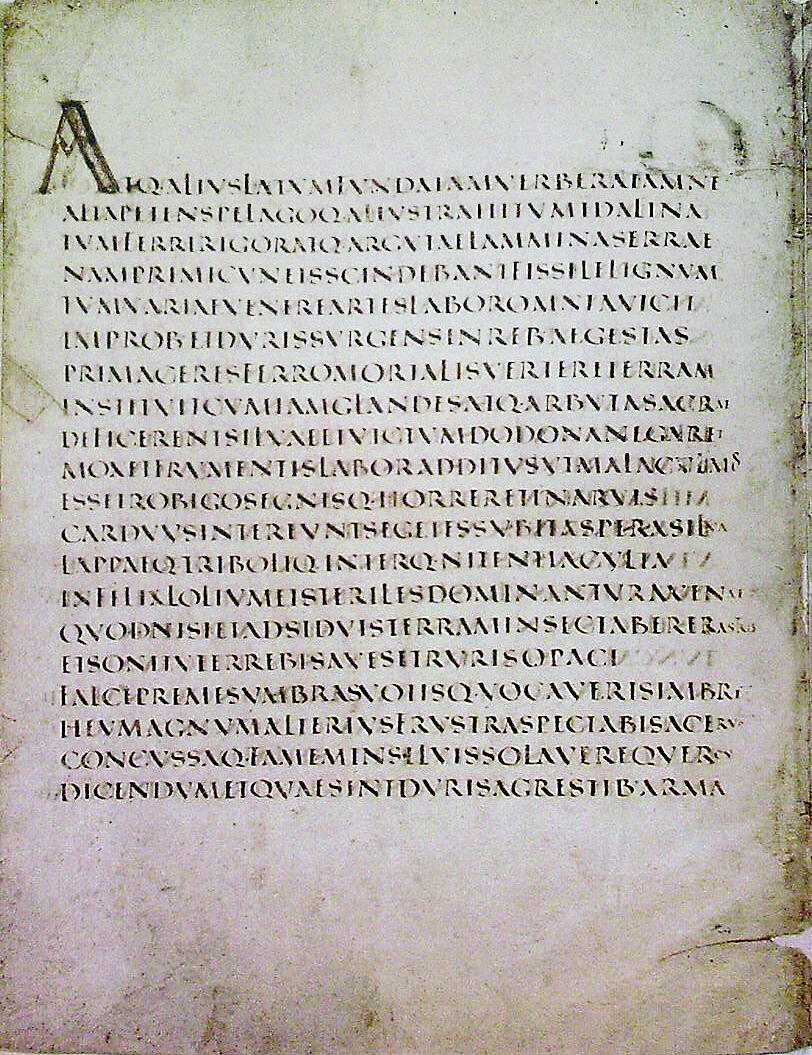 ATQALIVSLATVMFVNDAIAMVERBERATAMNE
ALTAPETENSPELAGOQALIVSTRAHITVMIDALINA
TVMFERRIRIGORATQARGVTAELAMMINASERRAE
NAMPRIMICVNEISSCINDEBANTFISSILELIGNVM
TVMVARIAEVENEREARTESLABOROMNIAVICIT
IMPROBETDVRISSVRGENSINREBAEGESTAS
PRIMACERESFERROMORTALISVERTERETERRAM
INSTITVITCVMIAMGLANDESATQARBVTASACRAE
DEFICERENTSILVAEETVICTVMDODONANEGARET
MOXETFRVMENTISLABORADDITVSVTMALACVLMOS
ESSETROBIGOSEGNISQ·HORRERETINARVIS
CARDVVSINTEREVNTSEGETESSVBITASPERASILVA
LAPPAEQTRIBOLIQ·INTERQNITENTIACVLTA
INFELIXLOLIVMETSTERILESDOMINANTVRAVENAE
QVODNISIETADSIDVISTERRAMINSECTABERERASTRIS
ETSONITVTERREBISAVESETRVRISOPACI
FALCEPREMESVMBRASVOTISQVOCAVERISIMBRE
HEVMAGNVMALTERIVSFRVSTRASPECTABISACERVO
CONCVSSAQ·FAMEMINSILVISSOLAVEREQVERCV
DICENDVMETQVAESINTDVRISAGRESTIBARMA